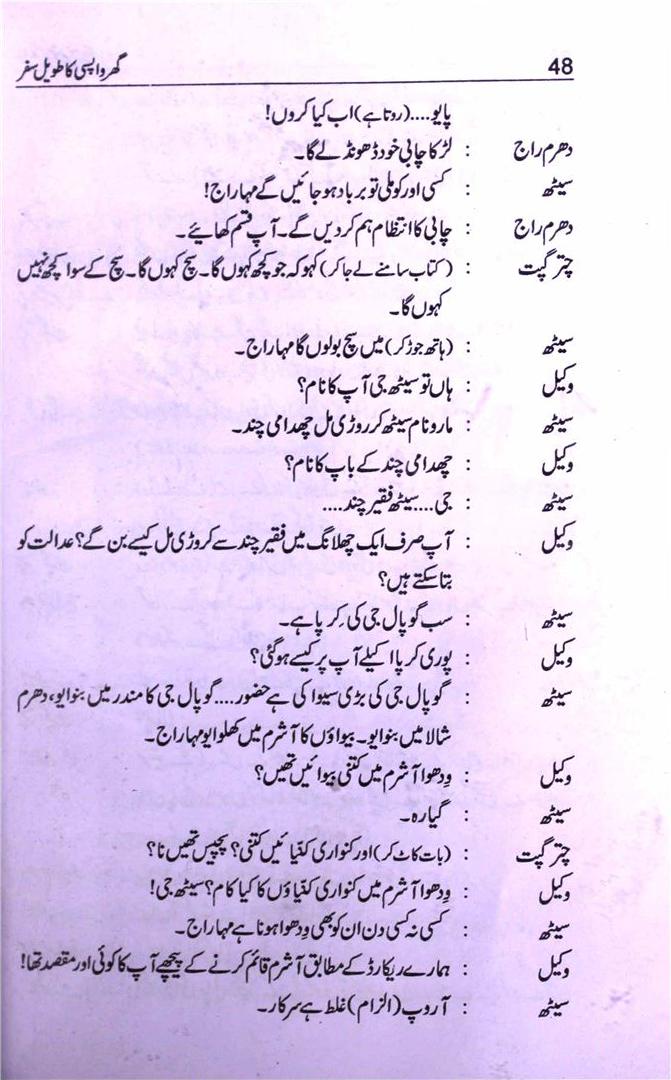 48 گھر واپسی کا طویل سفر
پایو....(روتا ہے) اب کیا کروں!
دھرم راج : لڑکا چابی خود ڈھونڈ لے گا۔
سیٹھ : کسی اور کو ملی تو برباد ہو جائیں گے مہاراج!
دھرم راج : چابی کا انتظام ہم کر دیں گے۔ آپ قسم کھائیے۔
چتر گپت : (کتاب سامنے لے جا کر) کہو کہ جو کچھ کہوں گا۔ سچ کہوں گا۔ سچ کے سوا کچھ نہیں
کہوں گا۔
سیٹھ : (ہاتھ جوڑ کر) میں سچ بولوں گا مہاراج۔
وکیل : ہاں تو سیٹھ جی آپ کا نام؟
سیٹھ : مارو نام سیٹھ کرروڑی مل چھدامی چند۔
وکیل : چھدامی چند کے باپ کا نام؟
سیٹھ : جی....سیٹھ فقیر چند....
وکیل : آپ صرف ایک چھلانگ میں فقیر چند سے کروڑی مل کیسے بن گے؟ عدالت کو
بتا سکتے ہیں؟
سیٹھ : سب گوپال جی کی کِرپا ہے۔
وکیل : پوری کرپا اکیلے آپ پر کیسے ہو گئی؟
سیٹھ : گوپال جی کی بڑی سیوا کی ہے حضور....گوپال جی کا مندر میں بنوایو، دھرم
شالا میں بنوایو۔ بیواؤں کا آشرم میں کھلوایو مہاراج۔
وکیل : وِدھوا آشرم میں کتنی بیوائیں تھیں؟
سیٹھ : گیارہ۔
چتر گپت : (بات کاٹ کر) اور کنواری کنّیائیں کتنی؟ پچیس تھیں نا؟
وکیل : وِدھوا آشرم میں کنواری کنّیاؤں کا کیا کام؟ سیٹھ جی!
سیٹھ : کسی نہ کسی دن ان کو بھی وِدھوا ہونا ہے مہاراج۔
وکیل : ہمارے ریکارڈ کے مطابق آشرم قائم کرنے کے پیچھے آپ کا کوئی اور مقصد تھا!
سیٹھ : آروپ (الزام) غلط ہے سرکار۔